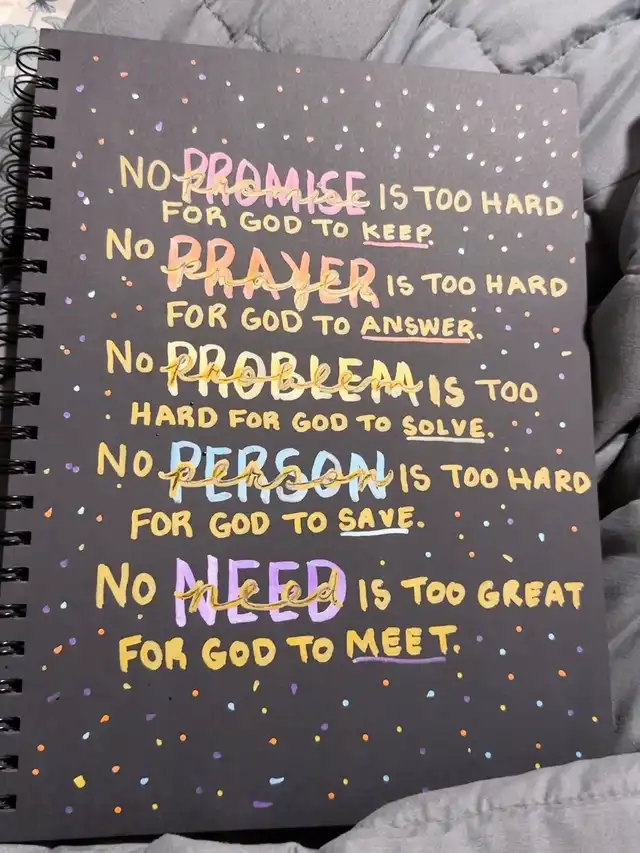 NO PROMISE promise IS TOO HARD
FOR GOD TO KEEP.
NO PRAYER prayer IS TOO HARD
FOR GOD TO ANSWER.
NO PROBLEM problem IS TOO
HARD FOR GOD TO SOLVE.
NO PERSON person IS TOO HARD
FOR GOD TO SAVE.
NO NEED need IS TOO GREAT
FOR GOD TO MEET.